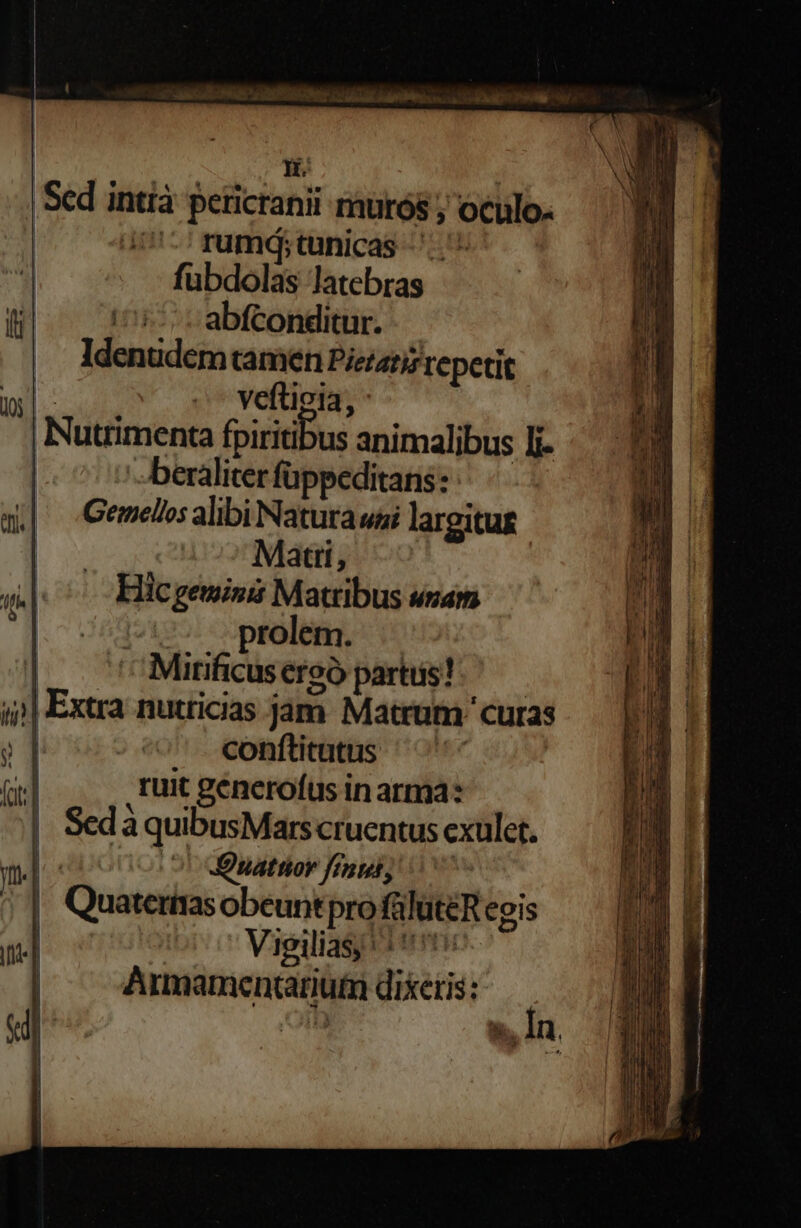 II.
Sed intrà pericranii muros, oculo-
rumq; tunicas
ſubdolas latebras
abſconditur.
Identidem tamen Pietatis repetit
veſtigia,
Nutrimenta ſpiritibus animalibus li-
beraliter ſuppeditans:
Gemellos alibi Natura uni largitur
Matri,
Hic geminis Matribus unam
prolem.
Mirificus ergò partus!
Extra nutricias jam Matrum curas
conſtitutus
ruit generoſus in arma:
Sed à quibus Mars cruentus exulet.
Quatuor ſinus,
Quaternas obeunt pro ſalute Regis
Vigilias,
Armamentarium dixeris:
In